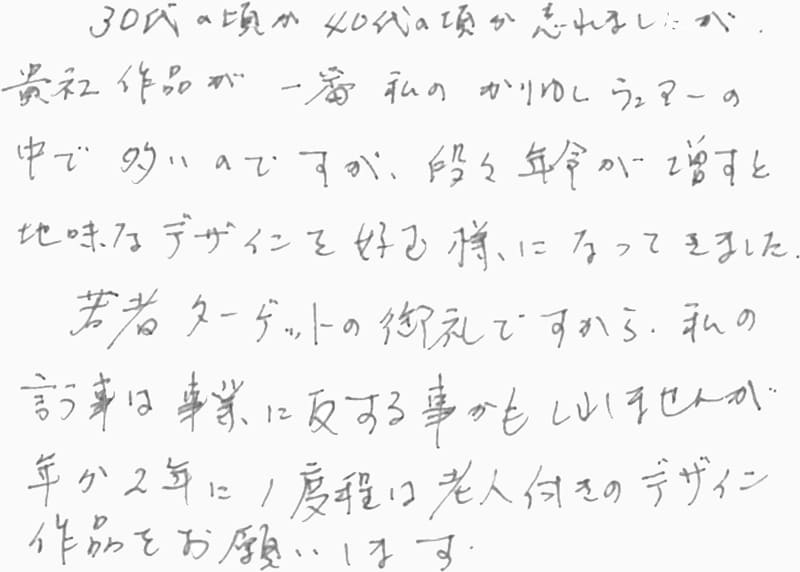 30代の頃か40代の頃か忘れましたが.
貴社作品が一番私のかりゆしウェアーの
中で多いのですが、段々年令が増すと
地味なデザインを好む様、になってきました.
若者ターゲットの御社ですから.私の
言う事は事業、に反する事かもしれませんが
年か2年に1度程は老人付きのデザイン
作品をお願いします.